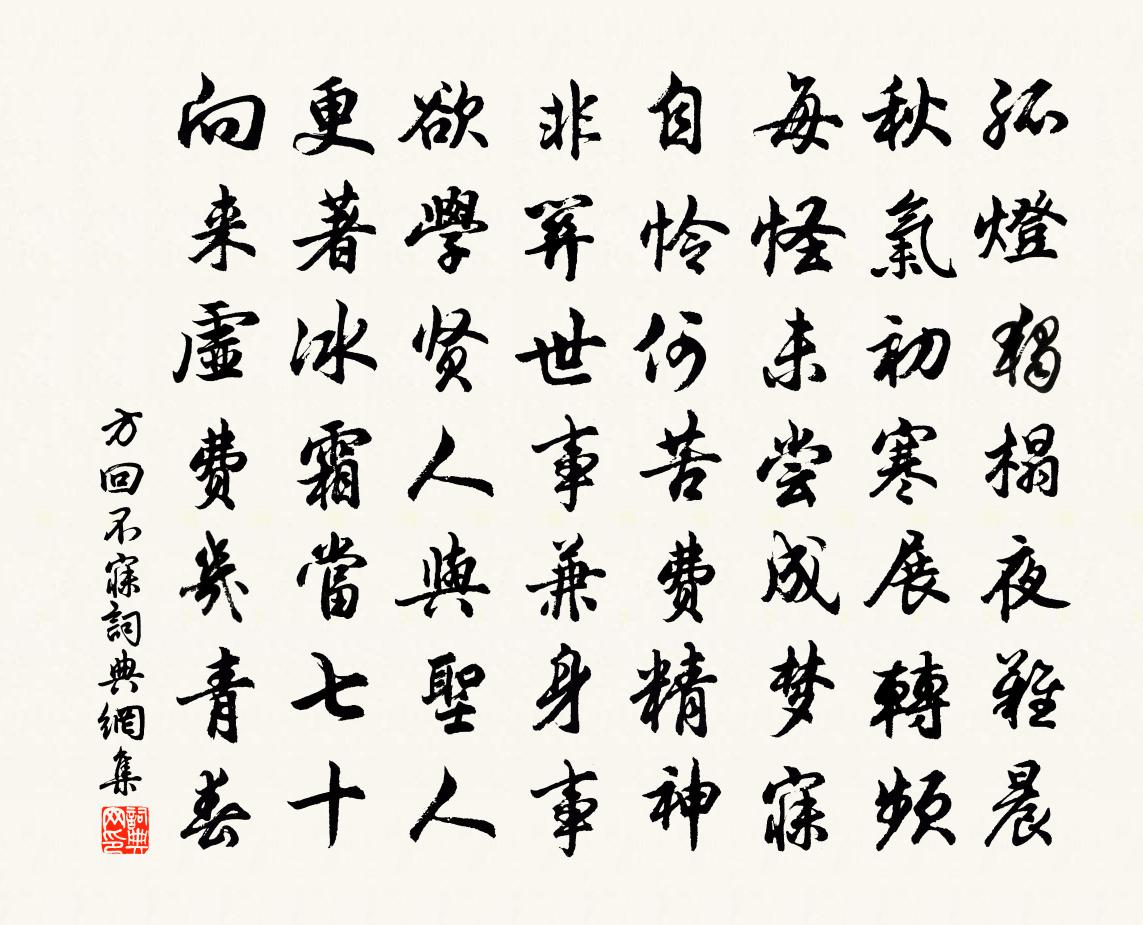 孤燈獨榻夜難晨
秋氣初寒展轉頻
每怪未嘗成梦寐
自怜何苦費精神
非關世事兼身事
欲學贤人與聖人
更著冰霜當七十
向来虛費幾青春
方回不寐詞典網集
詞典網印